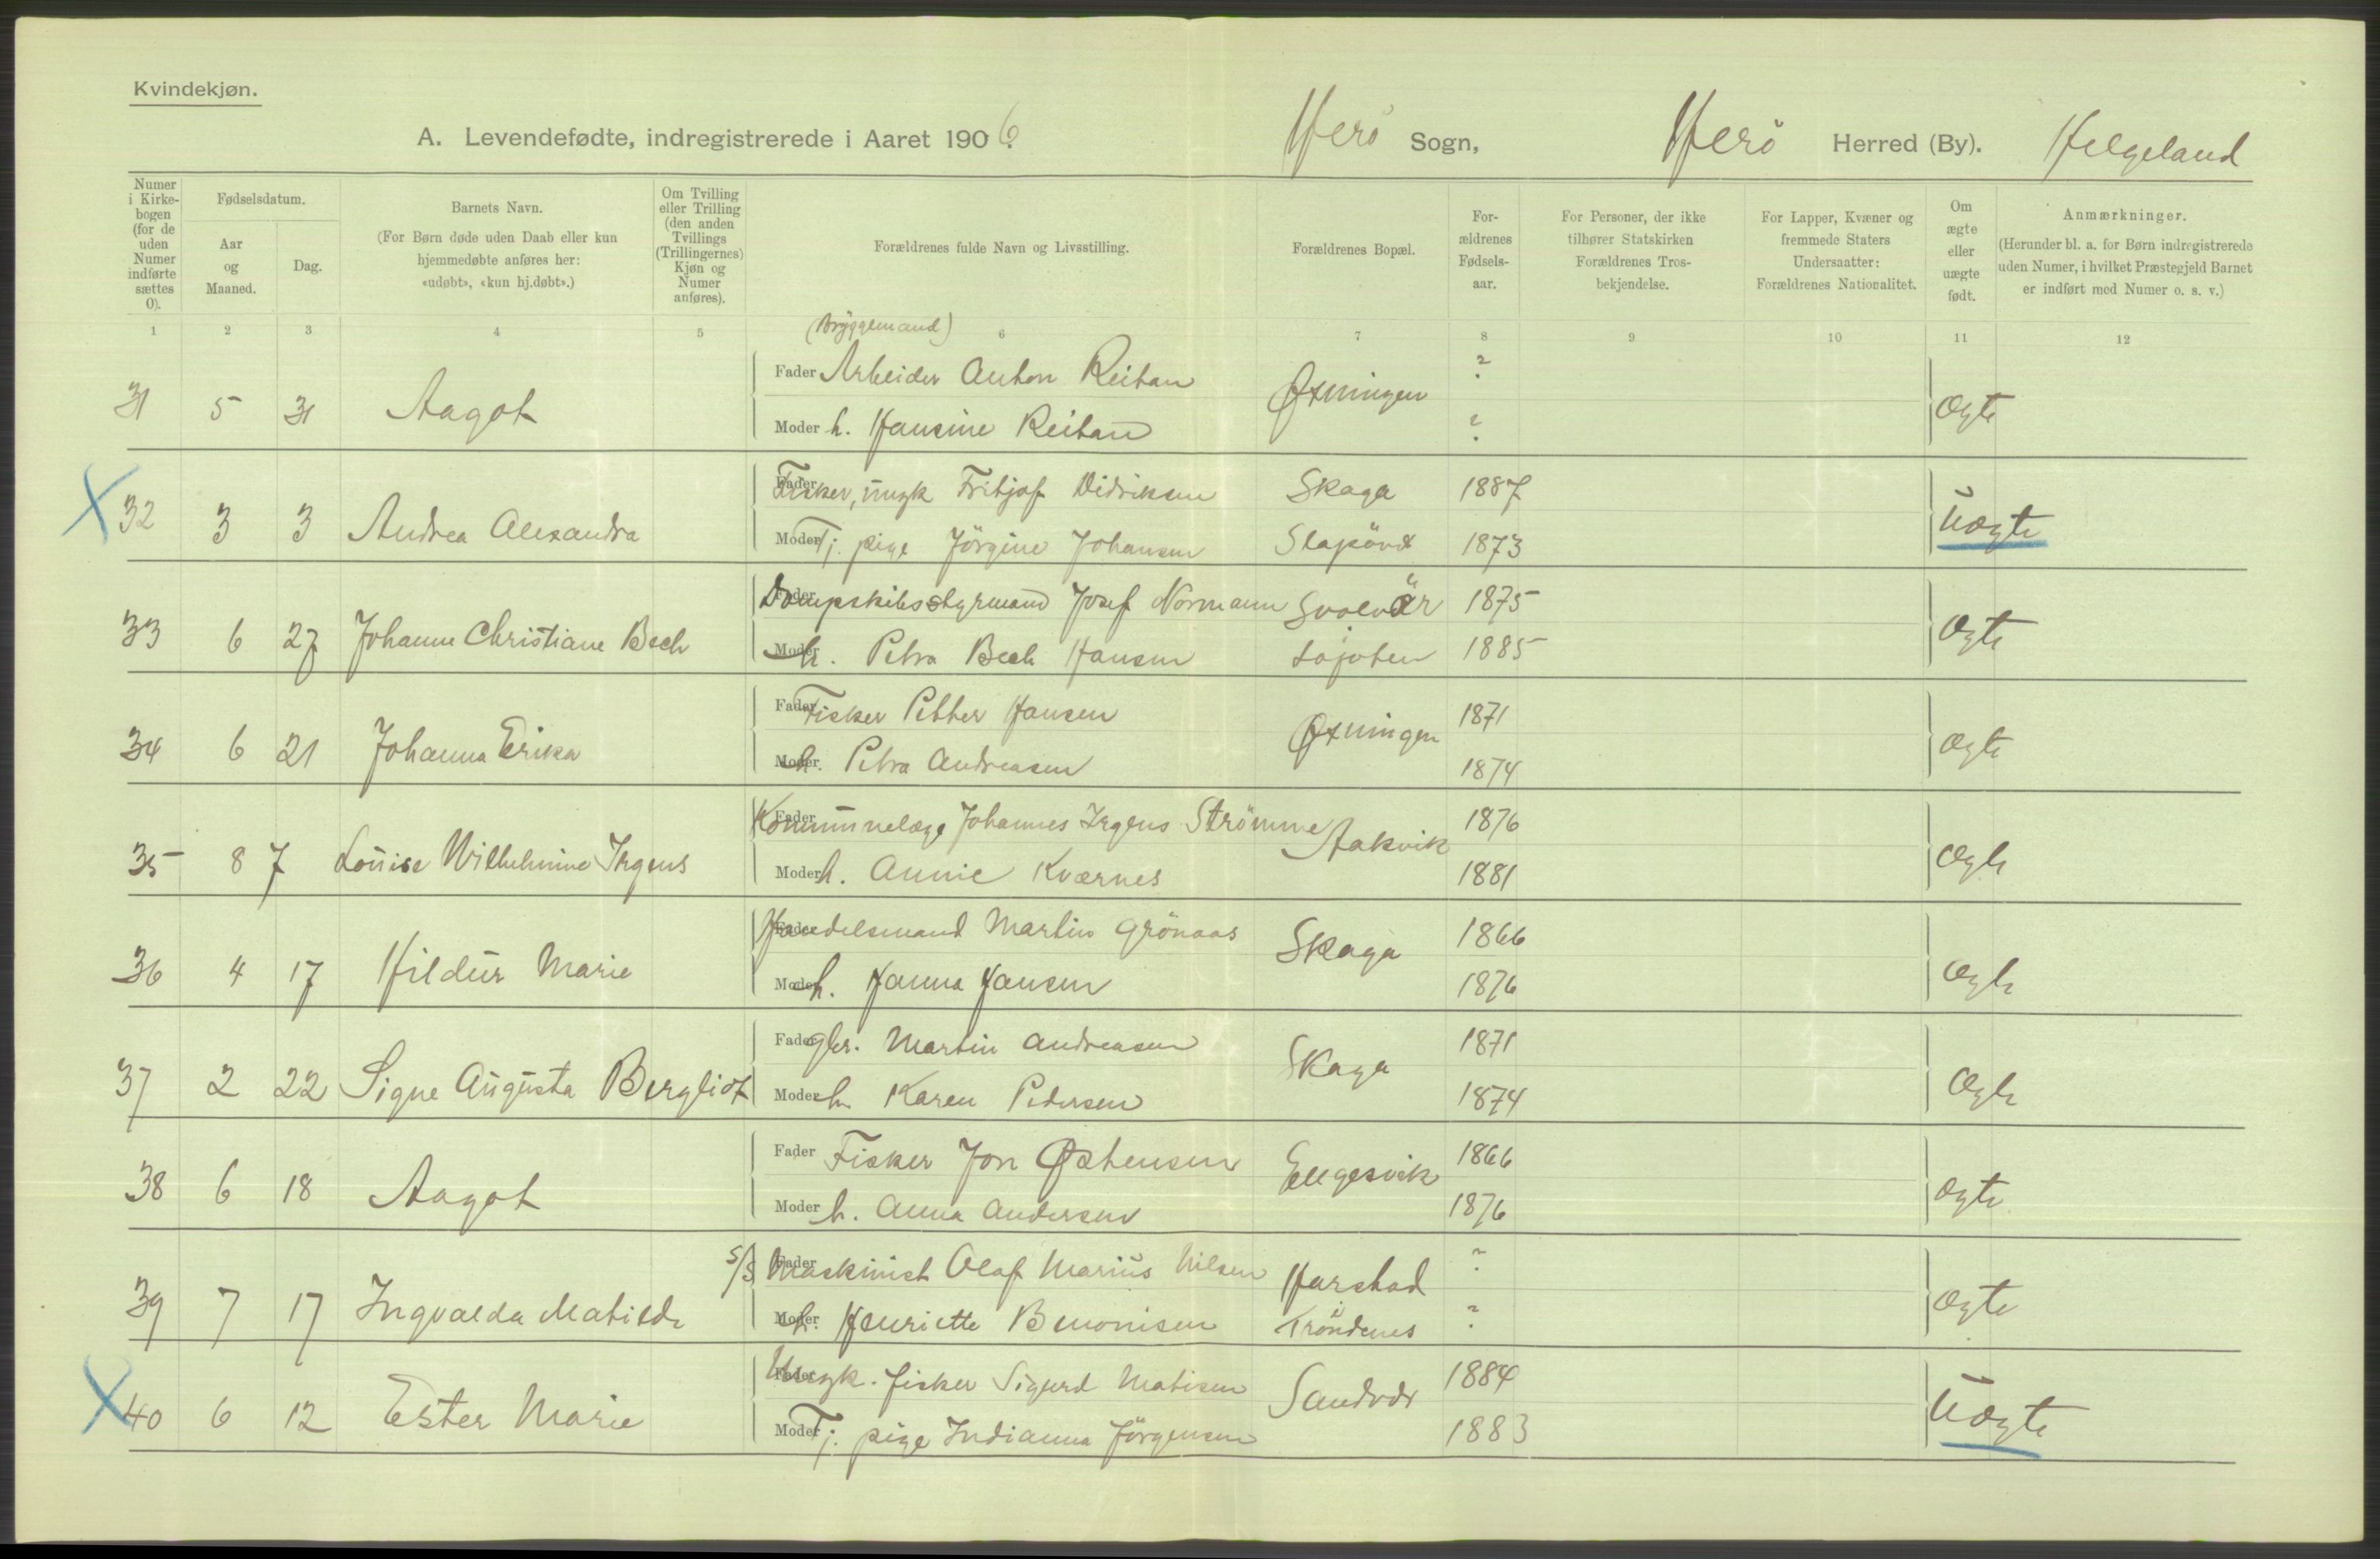 Kvindekjøn.
A. Levendefødte, indregistrerede i Aaret 1906. Herö Sogn, Herö Herred (By). Helgeland
Numer i Kirkebogen (for de uden Numer indførte sættes 0).
Fødselsdatum.
Aar og Maaned.
Dag.
Barnets Navn.
(For Børn døde uden Daab eller kun hjemmedøbte anføres her: «udøbt», «kun hj.døbt».)
Om Tvilling eller Trilling (den anden Tvillings (Trillingernes) Kjøn og Numer anføres).
Forældrenes fulde Navn og Livsstilling.
Forældrenes Bopæl.
Forældrenes Fødselsaar.
For Personer, der ikke tilhører Statskirken Forældrenes Trosbekjendelse.
For Lapper, Kvæner og fremmede Staters Undersaatter: Forældrenes Nationalitet.
Om ægte eller uægte født.
Anmærkninger.
(Herunder bl. a. for Børn indregistrerede uden Numer, i hvilket Præstegjeld Barnet er indført med Numer o. s. v.)
1 2 3 4 5 6 7 8 9 10 11 12
(Bryggemand)
31 5 31 Aagot Fader Arbeider Anton Reitan Øxningen ? ægte
Moder h. Hansine Reitan ?
X 32 3 3 Andrea Alexandra Fader Fisker, ungk Fritjof Didriksen Skaga 1887 uægte
Moder Tj. pige Jörgine Johansen Slapöen 1873
33 6 27 Johanne Christiane Bech Fader Dampskibsstyrmand Josef Normann Svolvær 1875 ægte
Moder h. Petra Bech Hansen Lofoten 1885
34 6 21 Johanna Erika Fader Fisker Petter Hansen Øxningen 1871 ægte
Moder h. Petra Andreasen 1874
35 8 7 Louise Wilhelmine Irgens Fader Kommunelæge Johannes Irgens Strömme Aakvik 1876 ægte
Moder h. Annie Kværnes 1881
36 4 17 Hildur Marie Fader Handelsmand Martin Grönaas Skaga 1866 ægte
Moder h. Hanna Hansen 1876
37 2 22 Signe Augusta Bergliot Fader gbr. Martin Andreasen Skaga 1871 ægte
Moder h. Karen Pedersen 1874
38 6 18 Aagot Fader Fisker Jon Østensen Engesvik 1866 ægte
Moder h. Anna Andersen 1876
39 7 17 Ingvalda Matilde S/S Fader Maskinist Olaf Marius Nilsen Harstad ? ægte
Moder h. Henriette Benonisen Tröndenes ?
X 40 6 12 Ester Marie Fader Ungk. fisker Sigurd Matisen Sandvær 1884 uægte
Moder Tj. pige Indianna Jörgensen 1883